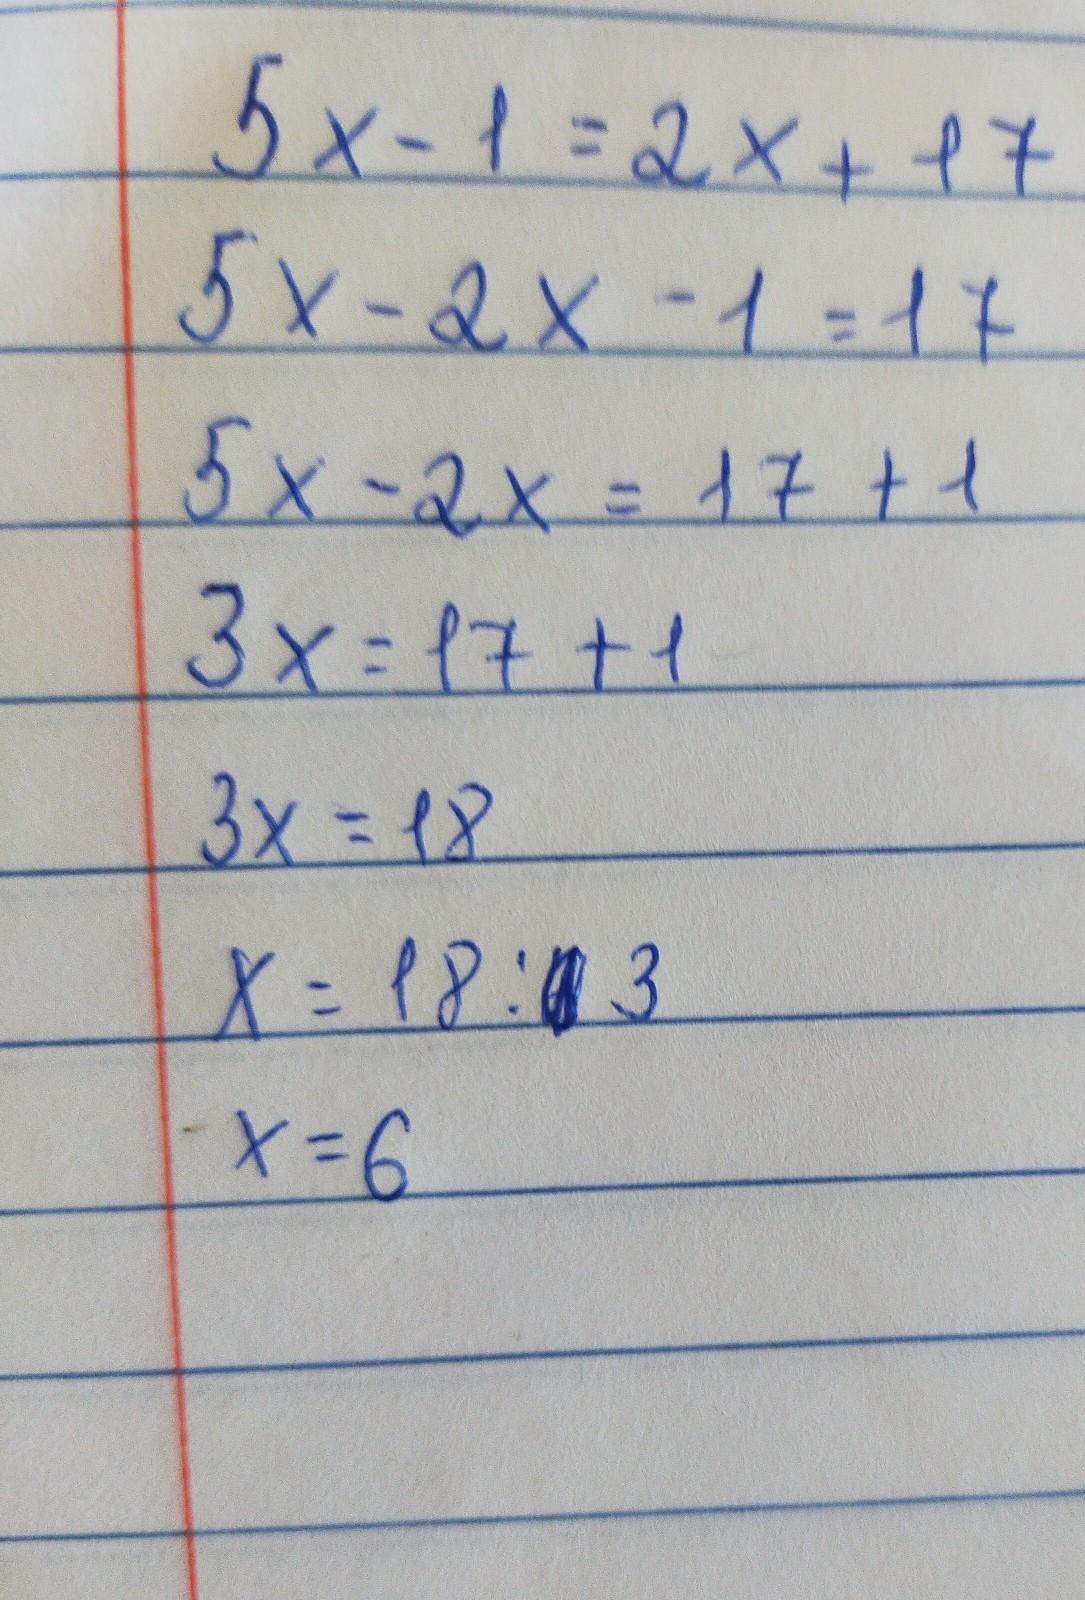 5x - 1 = 2x + 17
5x - 2x - 1 = 17
5x - 2x = 17 + 1
3x = 17 + 1
3x = 18
x = 18 : 3
x = 6